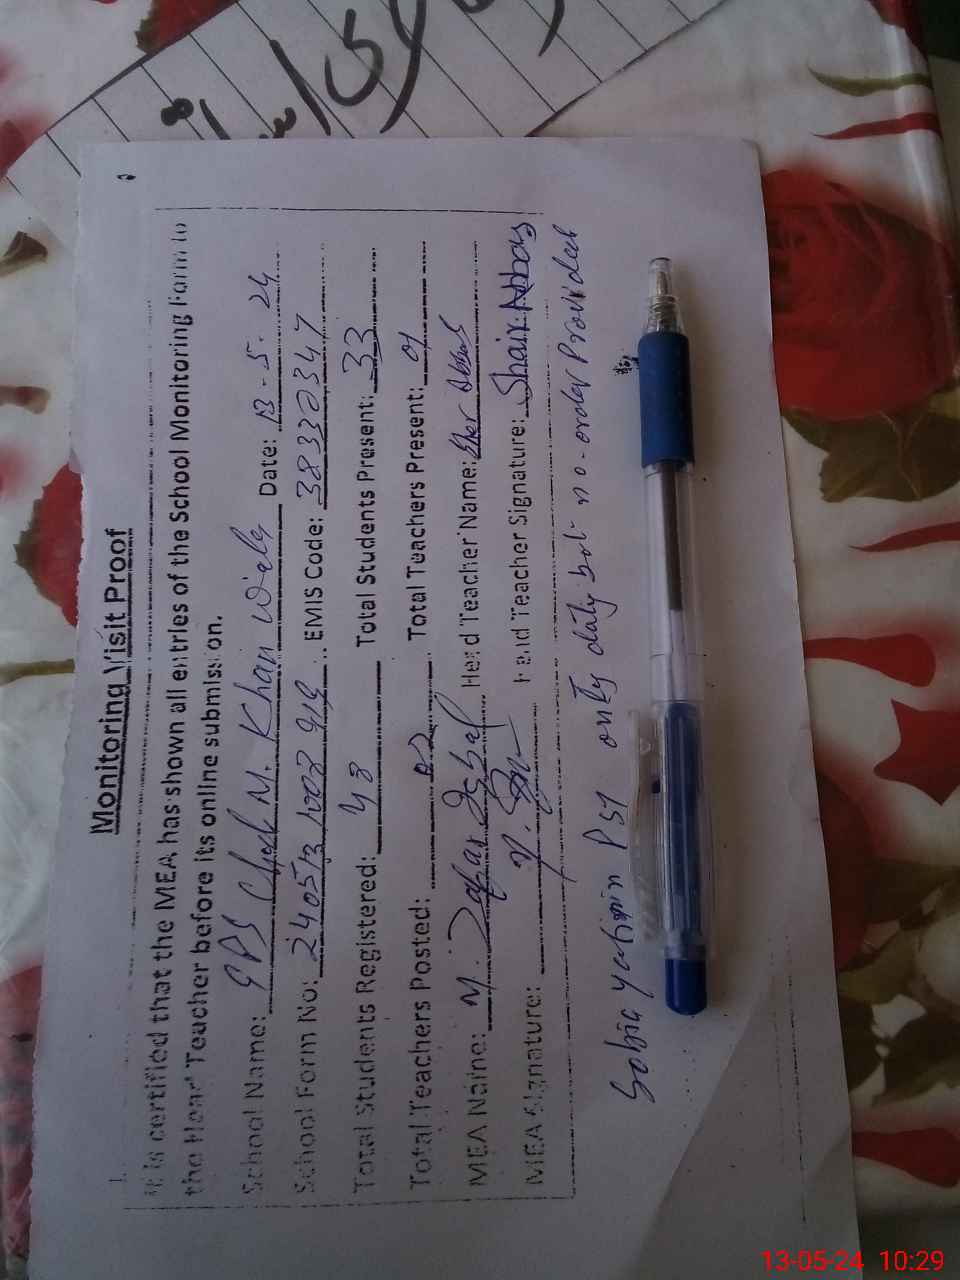 Monitoring Visit Proof
It is certified that the MEA has shown all entries of the School Monitoring Form to
the Head Teacher before its online submission.
School Name: GPS Chah M. Khan Wala Date: 13-5-24
School Form No: EMIS Code: 38330347
Total Students Registered: 48 Total Students Present: 33
Total Teachers Posted: 02 Total Teachers Present: 01
MEA Name: M. Zafar Iqbal Head Teacher Name: Sher Abbas
MEA Signature: Head Teacher Signature: Shair Abbas
Sobia PST only daily but no order Provided
13-05-24 10:29